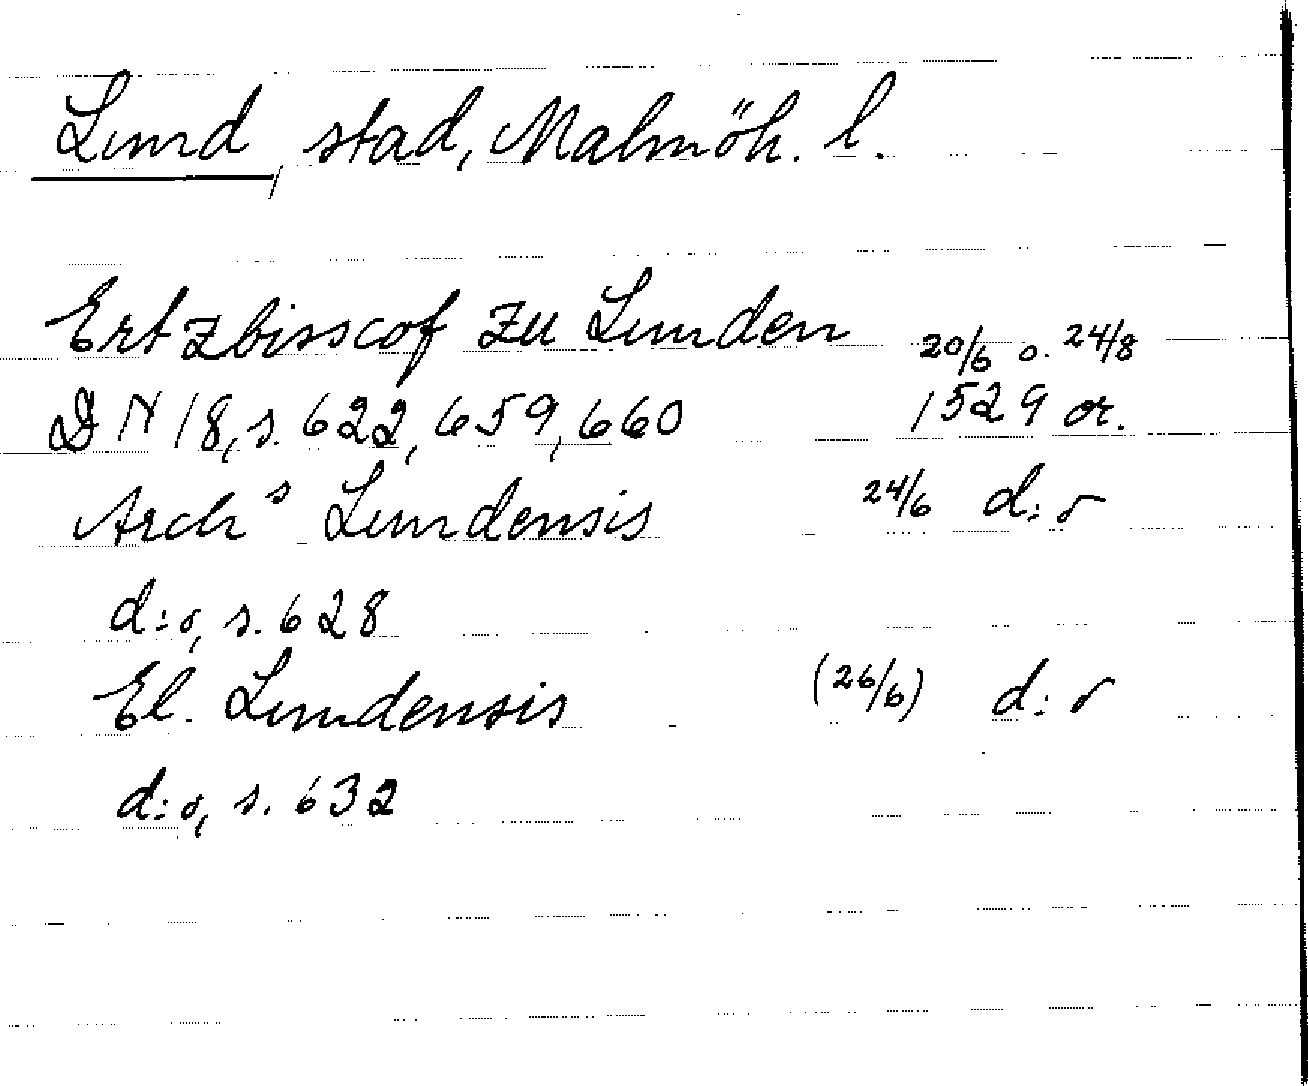 Lund, stad, Malmöh. l.
Ertzbisscof zu Lunden 20/6 o. 24/8
DN 18, s. 622, 659, 660 1529 or.
Arch^s Lundensis 24/6 d:o
d:o, s. 628
El. Lundensis (26/6) d:o
d:o, s. 632